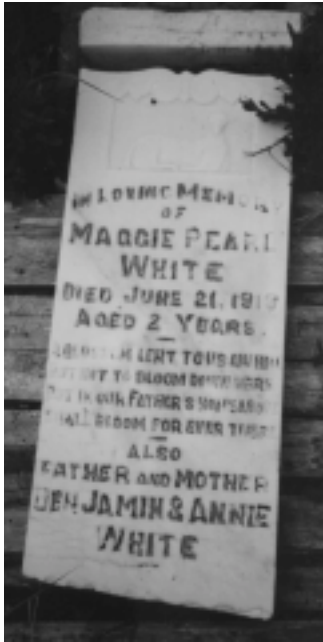 IN LOVING MEMORY
OF
MAGGIE PEARL
WHITE
DIED JUNE 21, 191
AGED 2 YEARS.
LENT TO US
TO BLOOM
IN OUR FATHER'S
BLOOM FOR EVER
ALSO
FATHER AND MOTHER
BENJAMIN & ANNIE
WHITE